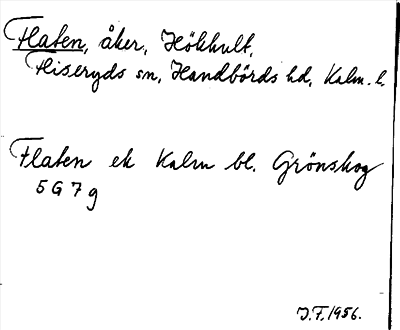 Flaten, åker, Hökhult,
Fliseryds sn, Handbörds hd, Kalm. l.
Flaten ek Kalm bl. Grönskog
5 G 7 g
J.F. 1956.